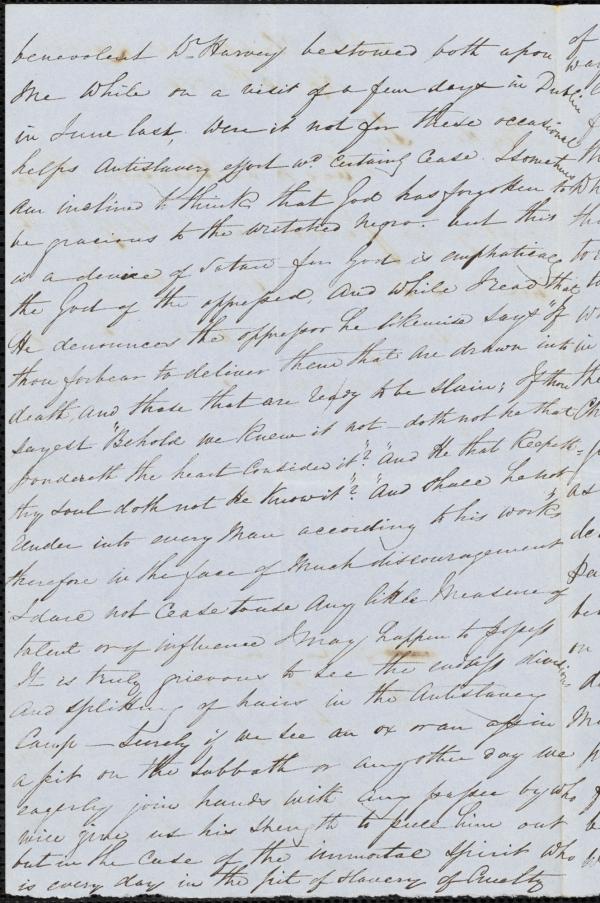 benevolent Dr Harvey bestowed both upon
me while on a visit of a few days in Dublin
in June last. Were it not for these occasional
helps Antislavery effort wd certainly cease. I sometimes
am inclined to think that God has forgotten to
be gracious to the wretched negro. but this
is a device of Satan for God is emphatically
the God of the oppressed. And while I read that
He denounces the oppressor he likewise says "If
thou forbear to deliver them that are drawn unto
death, and those that are ready to be slain; If thou
sayest "Behold we knew it not – doth not he that
pondereth the heart consider it"? "And He that keepeth
thy soul doth not He know it"? "And shall he not
render unto every Man according to his work"
therefore in the face of much discouragement
I dare not cease to use any little measure of
talent or of influence I may happen to possess
It is truly grievous to see the endless division
and splitting of hairs in the Antislavery
Camp – Surely if we see an ox or an ass in
a pit on the Sabbath or any other day we
eagerly join hands with any passer by who
will give us his strength to pull him out
but in the case of the immortal spirit who
is every day in the pit of Slavery of Cruelty